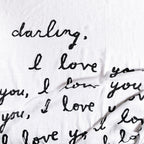 darling,
I love yo
you, I love you
you, I love u
love you I lo
I lo